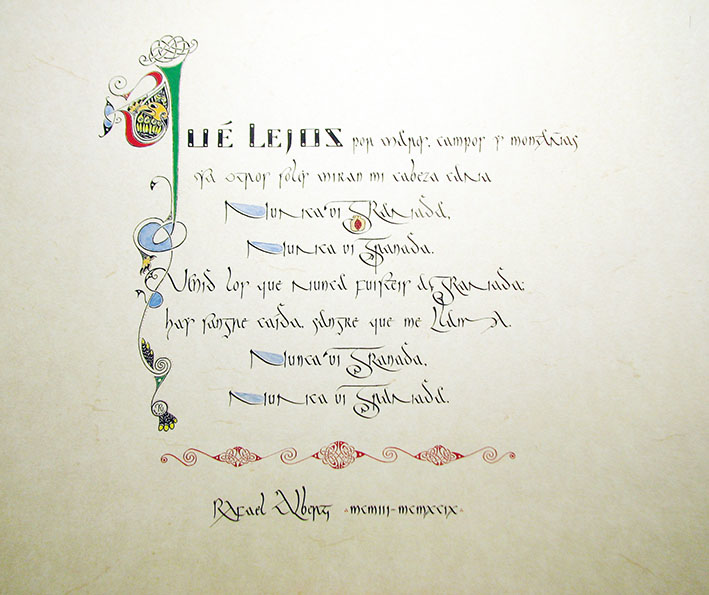 Qué lejos por mares, campos y montañas
ya otros soles miran mi cabeza cana
Nunca vi Granada,
Nunca vi Granada.
Venid los que nunca fuisteis a Granada:
hay sangre caída, sangre que me llama.
Nunca vi Granada,
Nunca vi Granada.
Rafael Alberti MCMIII-MCMXCIX